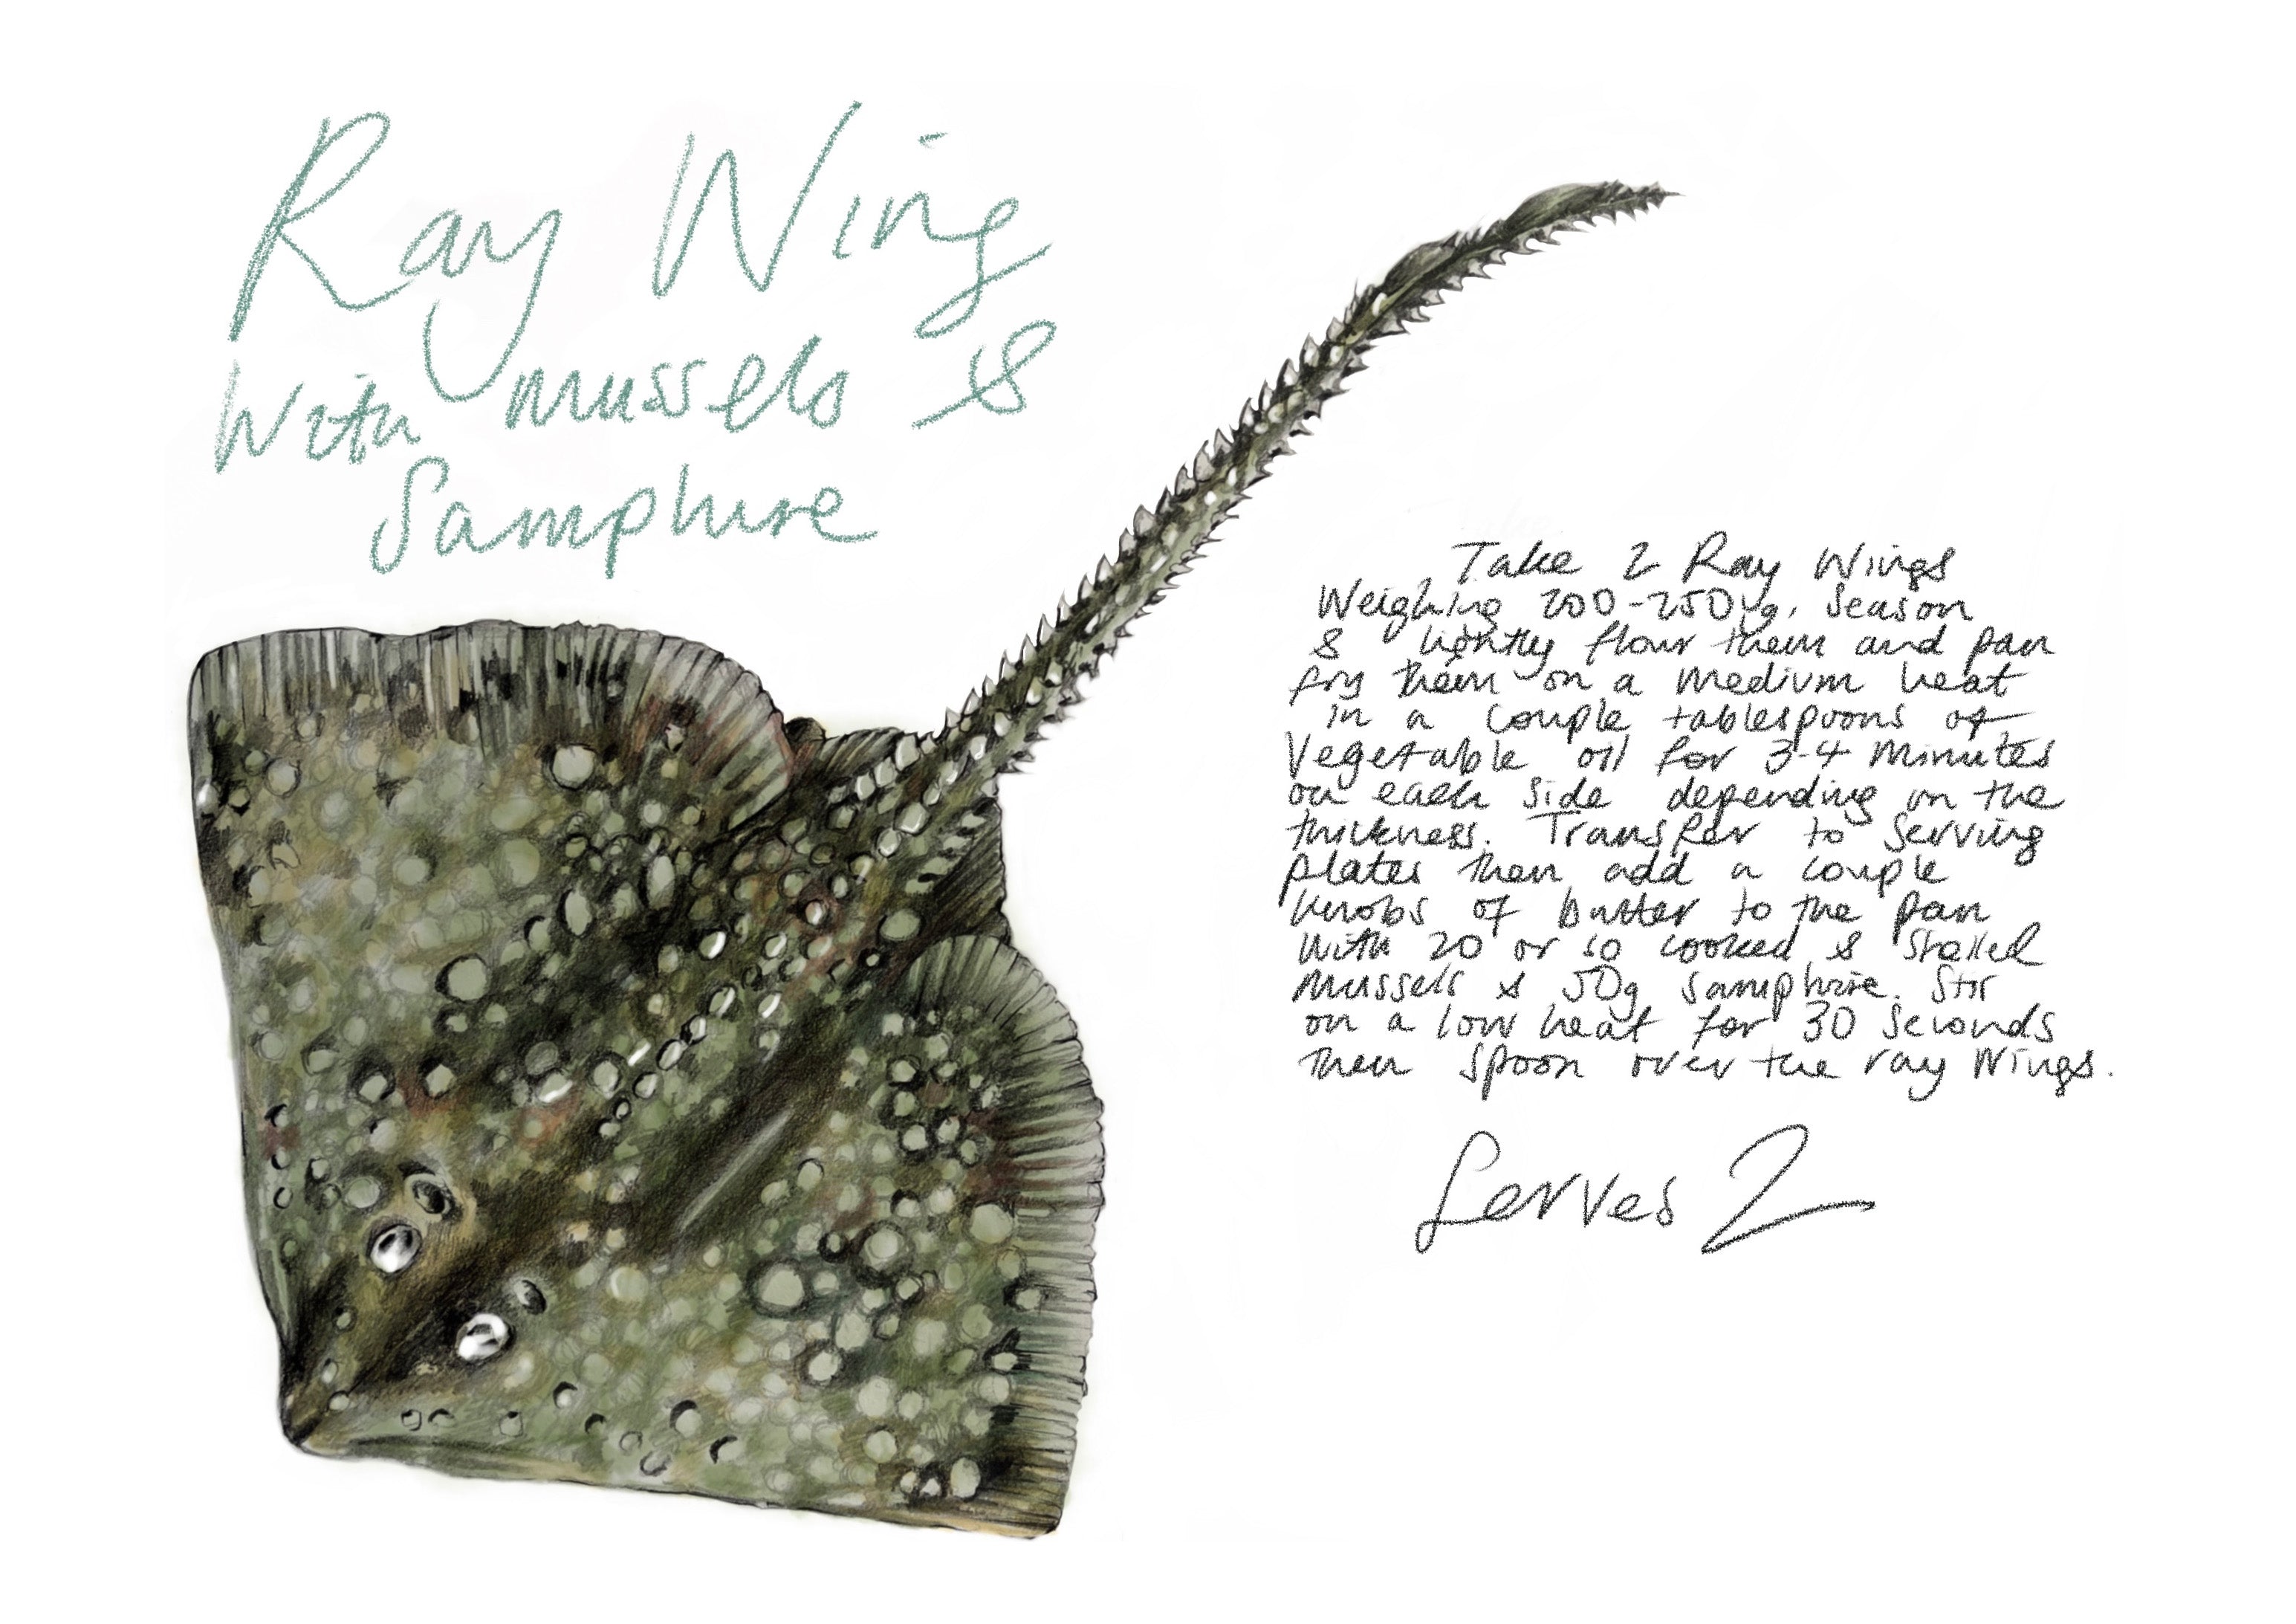 Ray Wing
With mussels &
Samphire
Take 2 Ray Wings
Weighing 200-250g. Season
& lightly flour them and pan
fry them on a medium heat
in a couple tablespoons of
Vegetable oil for 3-4 Minutes
on each side depending on the
thickness. Transfer to serving
plates then add a couple
knobs of butter to the pan
with 20 or so cooked & shelled
mussels & 50g samphire. Stir
on a low heat for 30 seconds
then spoon over the ray wings.
Serves 2